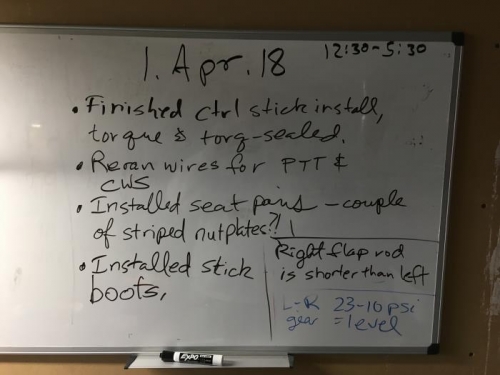 12:30-5:30
1. Apr. 18
• Finished ctrl stick install,
torque & torq-sealed.
• Reran wires for PTT &
CWS
• Installed seat pans - couple
of striped nutplates?!
• Installed stick
boots.
Right flap rod
is shorter than left
L-R 23-16 psi
gear = level
EXPO